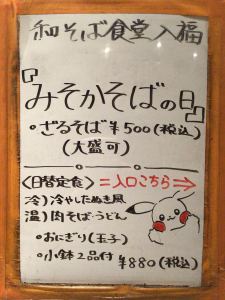 和そば食堂入福
『みそかそばの日』
・ざるそば ¥500(税込)
(大盛可)
<日替定食> =入口こちら⇒
冷)冷やしたぬき風
温)肉そば・うどん
・おにぎり(玉子)
・小鉢2品付 ¥880(税込)